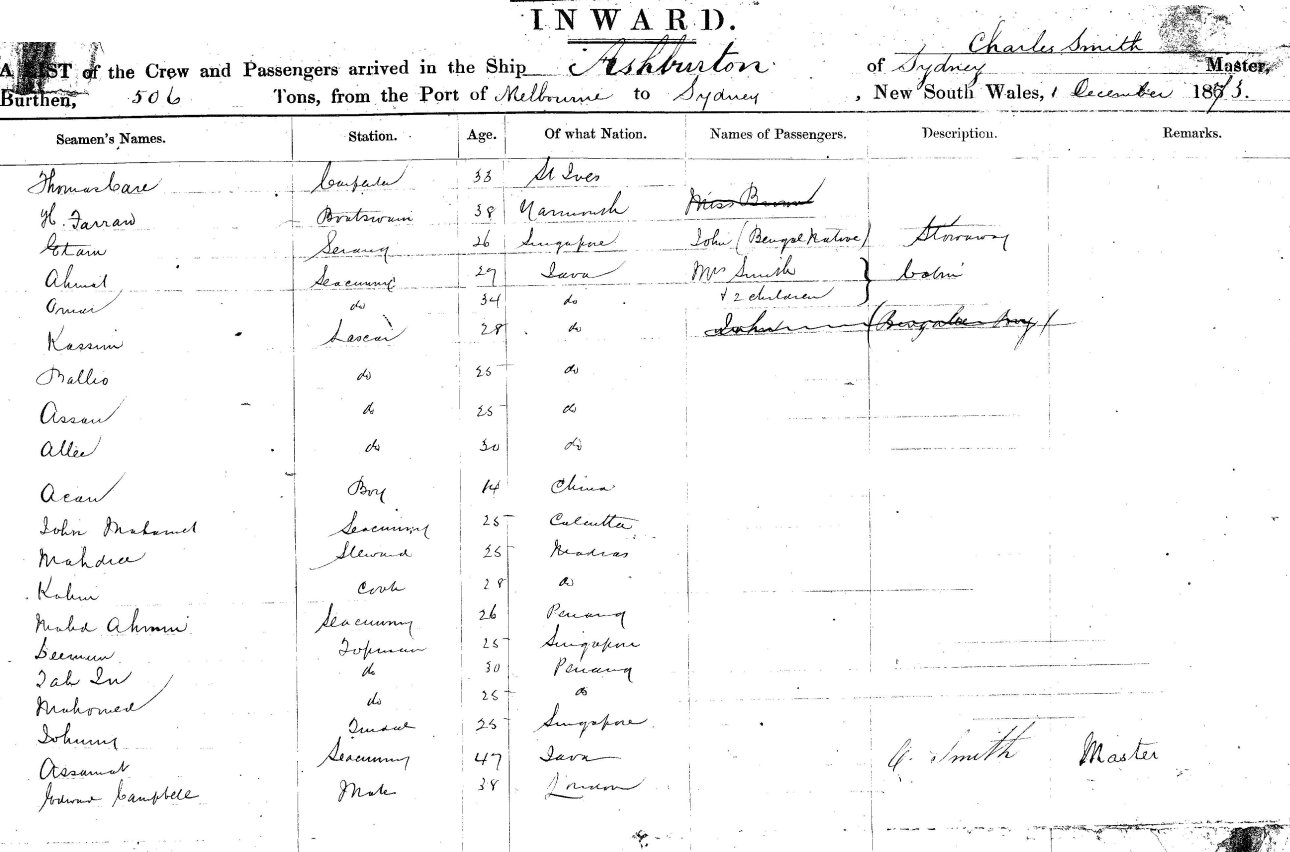 INWARD.
A LIST of the Crew and Passengers arrived in the Ship Ashburton of Sydney Charles Smith Master,
Burthen, 506 Tons, from the Port of Melbourne to Sydney, New South Wales, 1 December 1873.
Seamen's Names. Station. Age. Of what Nation. Names of Passengers. Description. Remarks.
Thomas Care 33 St Ives
H. Farraw Boatswain 38 Yarmouth Miss
Etam Serang 26 Singapore John (Bengal Native) Stowaway
Ahmat Seacunny 27 Java Mrs Smith Cabin
Omar do 34 do + 2 children
Kassim Lascar 28 do John
Ballio do 25 do
Assan do 25 do
Allee do 30 do
Acan Boy 14 China
John Mahamet Seacunny 25 Calcutta
Mahdee Steward 25 Madras
Kahm Cook 28 do
Seacunny 26 Penang
Topman 25 Singapore
do 30 Penang
Mahomed do 25 do
Johnny Tindal 25 Singapore
Assamat Seacunny 47 Java C. Smith Master
Edward Campbell Mate 38 London